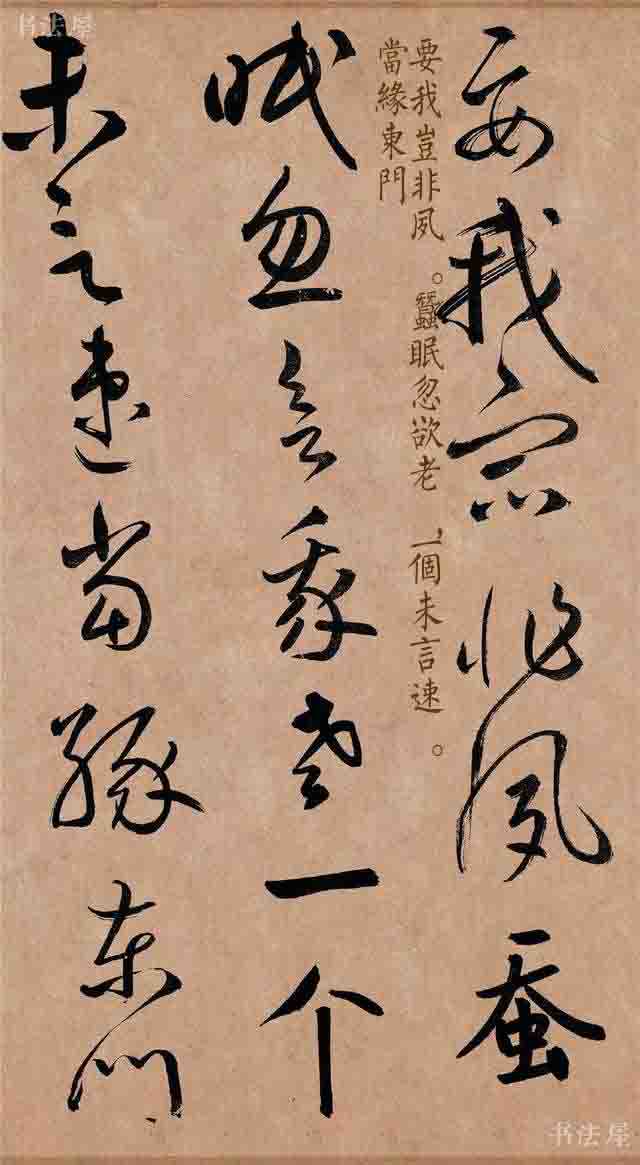 书法屋
要我豈非夙蚕
要我豈非夙。蠶眠忽欲老,一個未言速。
當緣東門
眠忽欲老一个
未言速当缘东门
书法屋